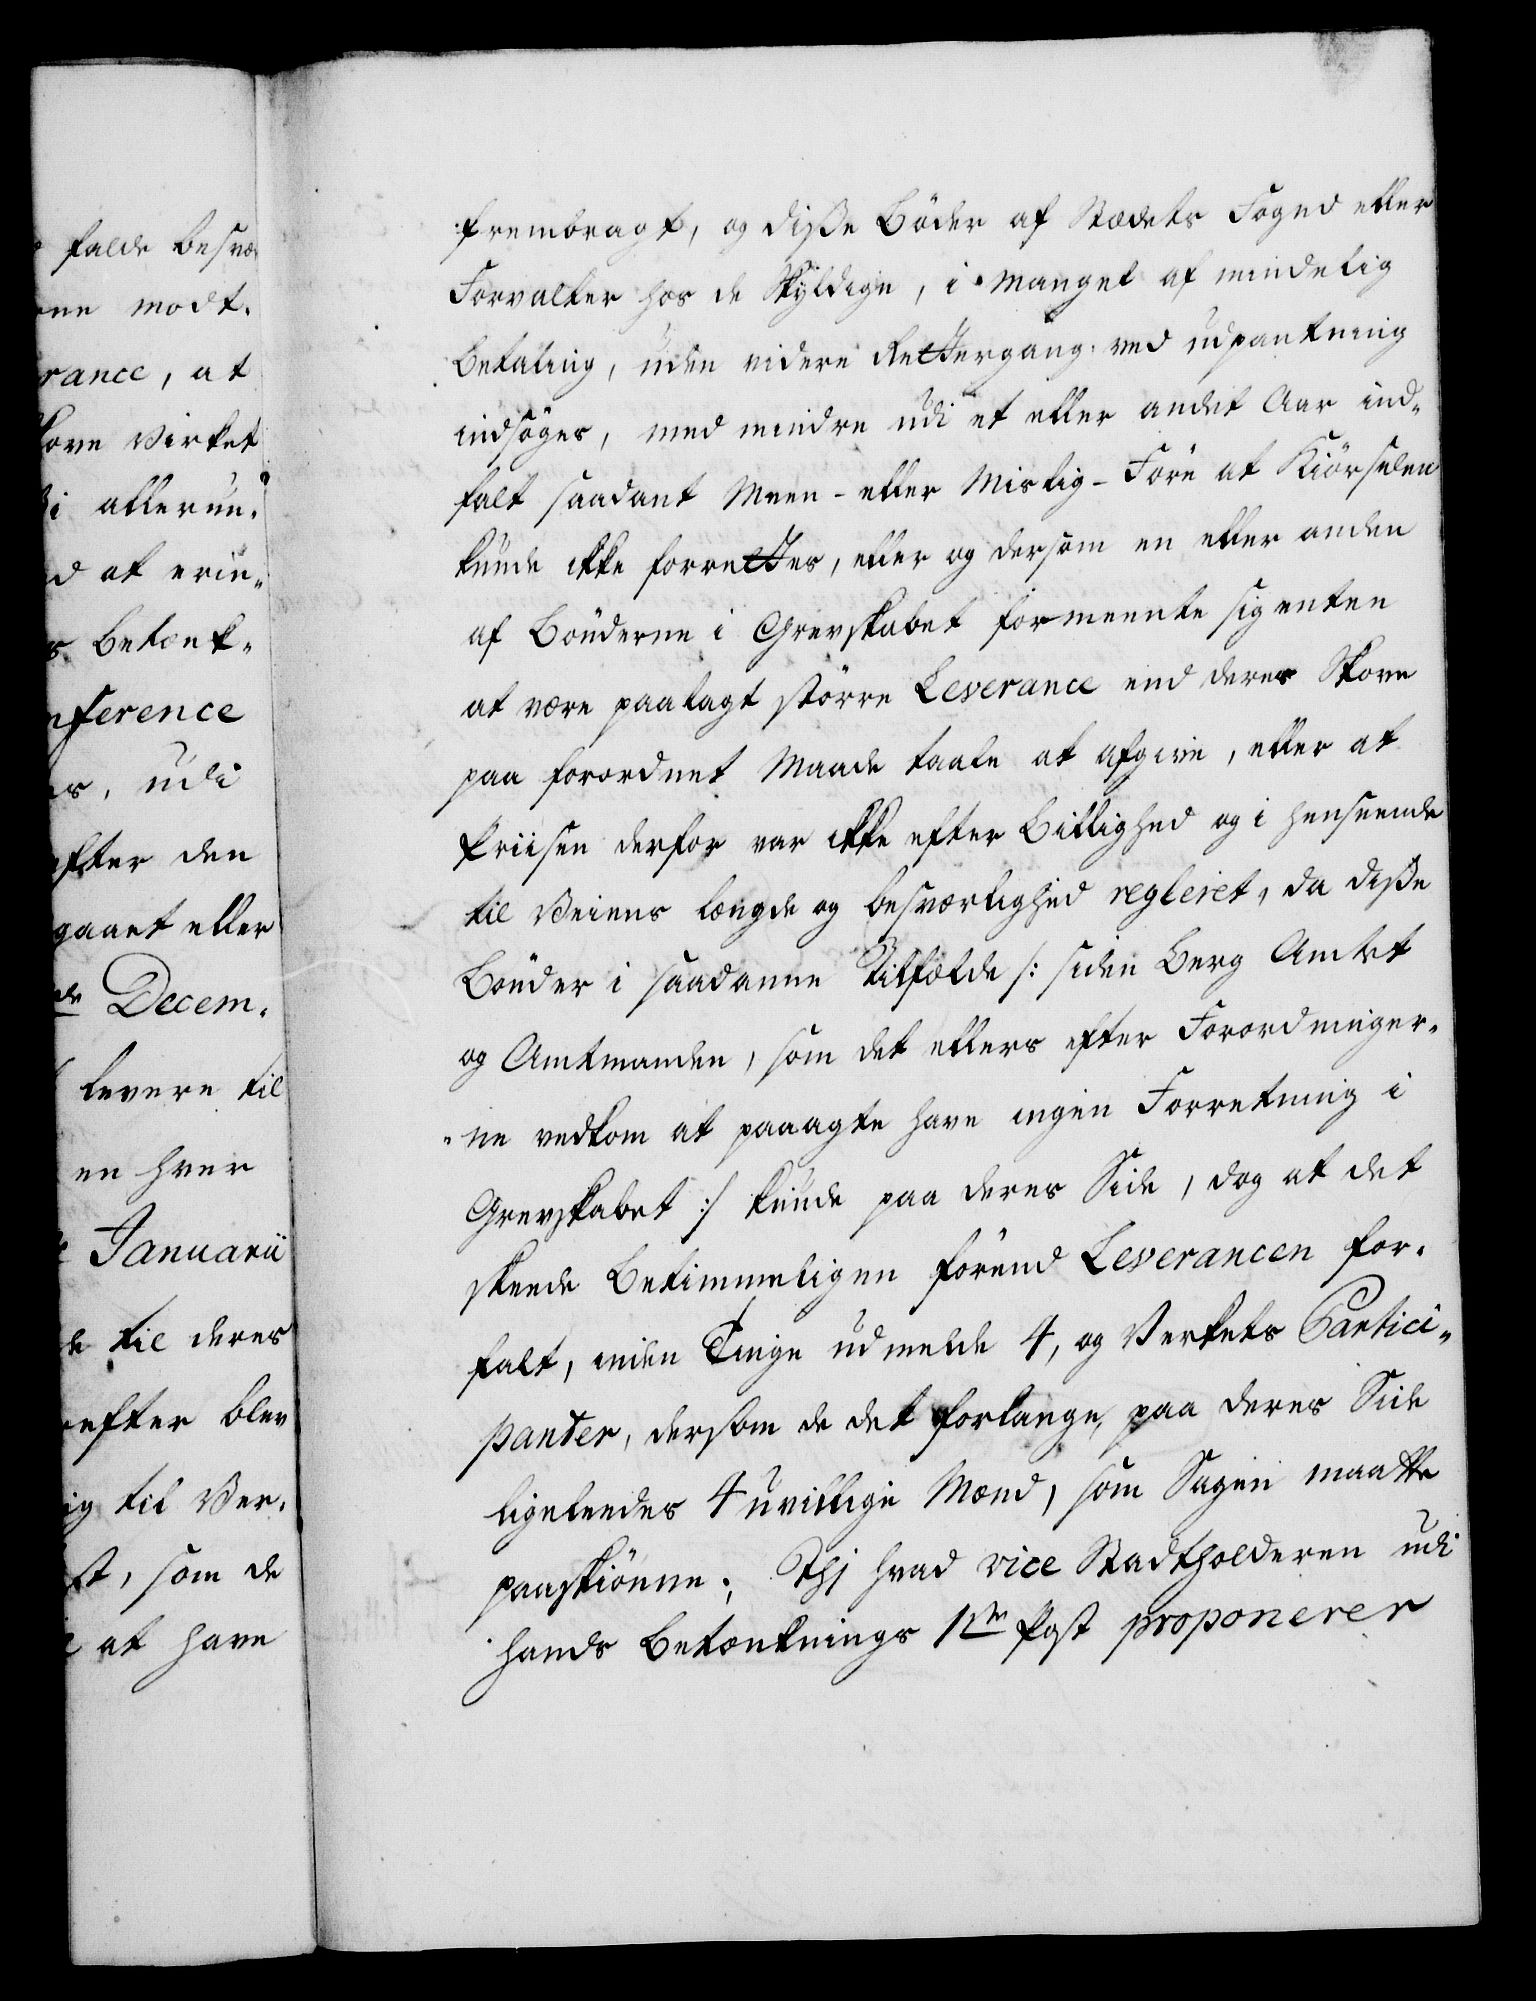 falde besvæ
ne modt.
rance, at
kove Virket
i allerun.
d at erin„
s Betænk„
nference
s, udi
efter den
gaaet eller
de Decem.
levere til
en hver
Januarii
e til deres
efter blev
ig til Ver.
t, som de
at have
frembragt, og disse Böder af Stædets Foged eller
Forvalter hos de Skyldige, i Mangel af mindelig
Betaling, uden videre Rettergang ved udpantning
indsöges, med mindre udi et eller andet Aar ind„
falt saadant Meen- eller Mislig-Före at Kiörselen
kunde ikke forrettes, eller og dersom en eller anden
af Bönderne i Grevskabet formeente sig enten
at være paalagt större Leverance end deres Skove
paa forordnet Maade taale at afgive, eller at
Priisen derfor var ikke efter Billighed og i henseende
til Veiens længde og besværlighed regleret, da disse
Bönder i saadanne Tilfælde /: siden Berg Amtet
og Amtmanden, som det ellers efter Forordninger„
„ne vedkom at paaagte have ingen Forretning i
Grevskabet :/ kunde paa deres Side, dog at det
skeede Betimmeligen förend Leverancen for„
falt, inden Tinge udmelde 4, og Verkets Partici„
panter, dersom de det forlange, paa deres Side
ligeleedes 4 uvillige Mænd, som Sagen maatte
paaskiönne; Thj hvad vice Stadtholderen udi
hands Betænknings 1ste Post proponerer